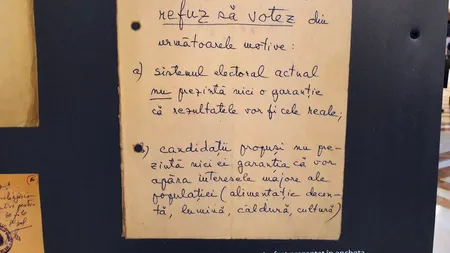 refuz să votez din
următoarele motive :
a) sistemul electoral actual
nu prezintă nici o garanție
că rezultatele vor fi cele reale;
b) candidatii propuși nu pre-
zintă nici ei garantia că vor
apăra interesele majore ale
populației (alimentație decen-
tă, lumină, căldură, cultură)